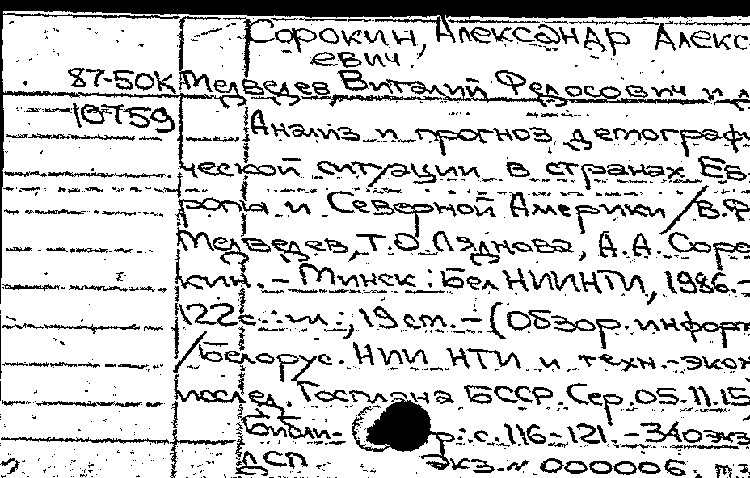 Сорокин, Александр Алекс
евич
87-50К Медведев Виталий Федосович и д
Анализ и прогноз демографи
ческой ситуации в странах Ев
ропы и Северной Америки / В.Ф.
Медведев, Т.О. Ляднова, А.А. Соро
кин. - Минск: Бел НИИНТИ, 1986.-
122с.: ил.; 19 см. - (Обзор. информ
/ Белорус. НИИ НТИ и техн.-экон
послед. Госплана БССР. Сер. 05.11.15
Библи- р: с. 116-121. - 340экз
ДСП Экз. н 000006.